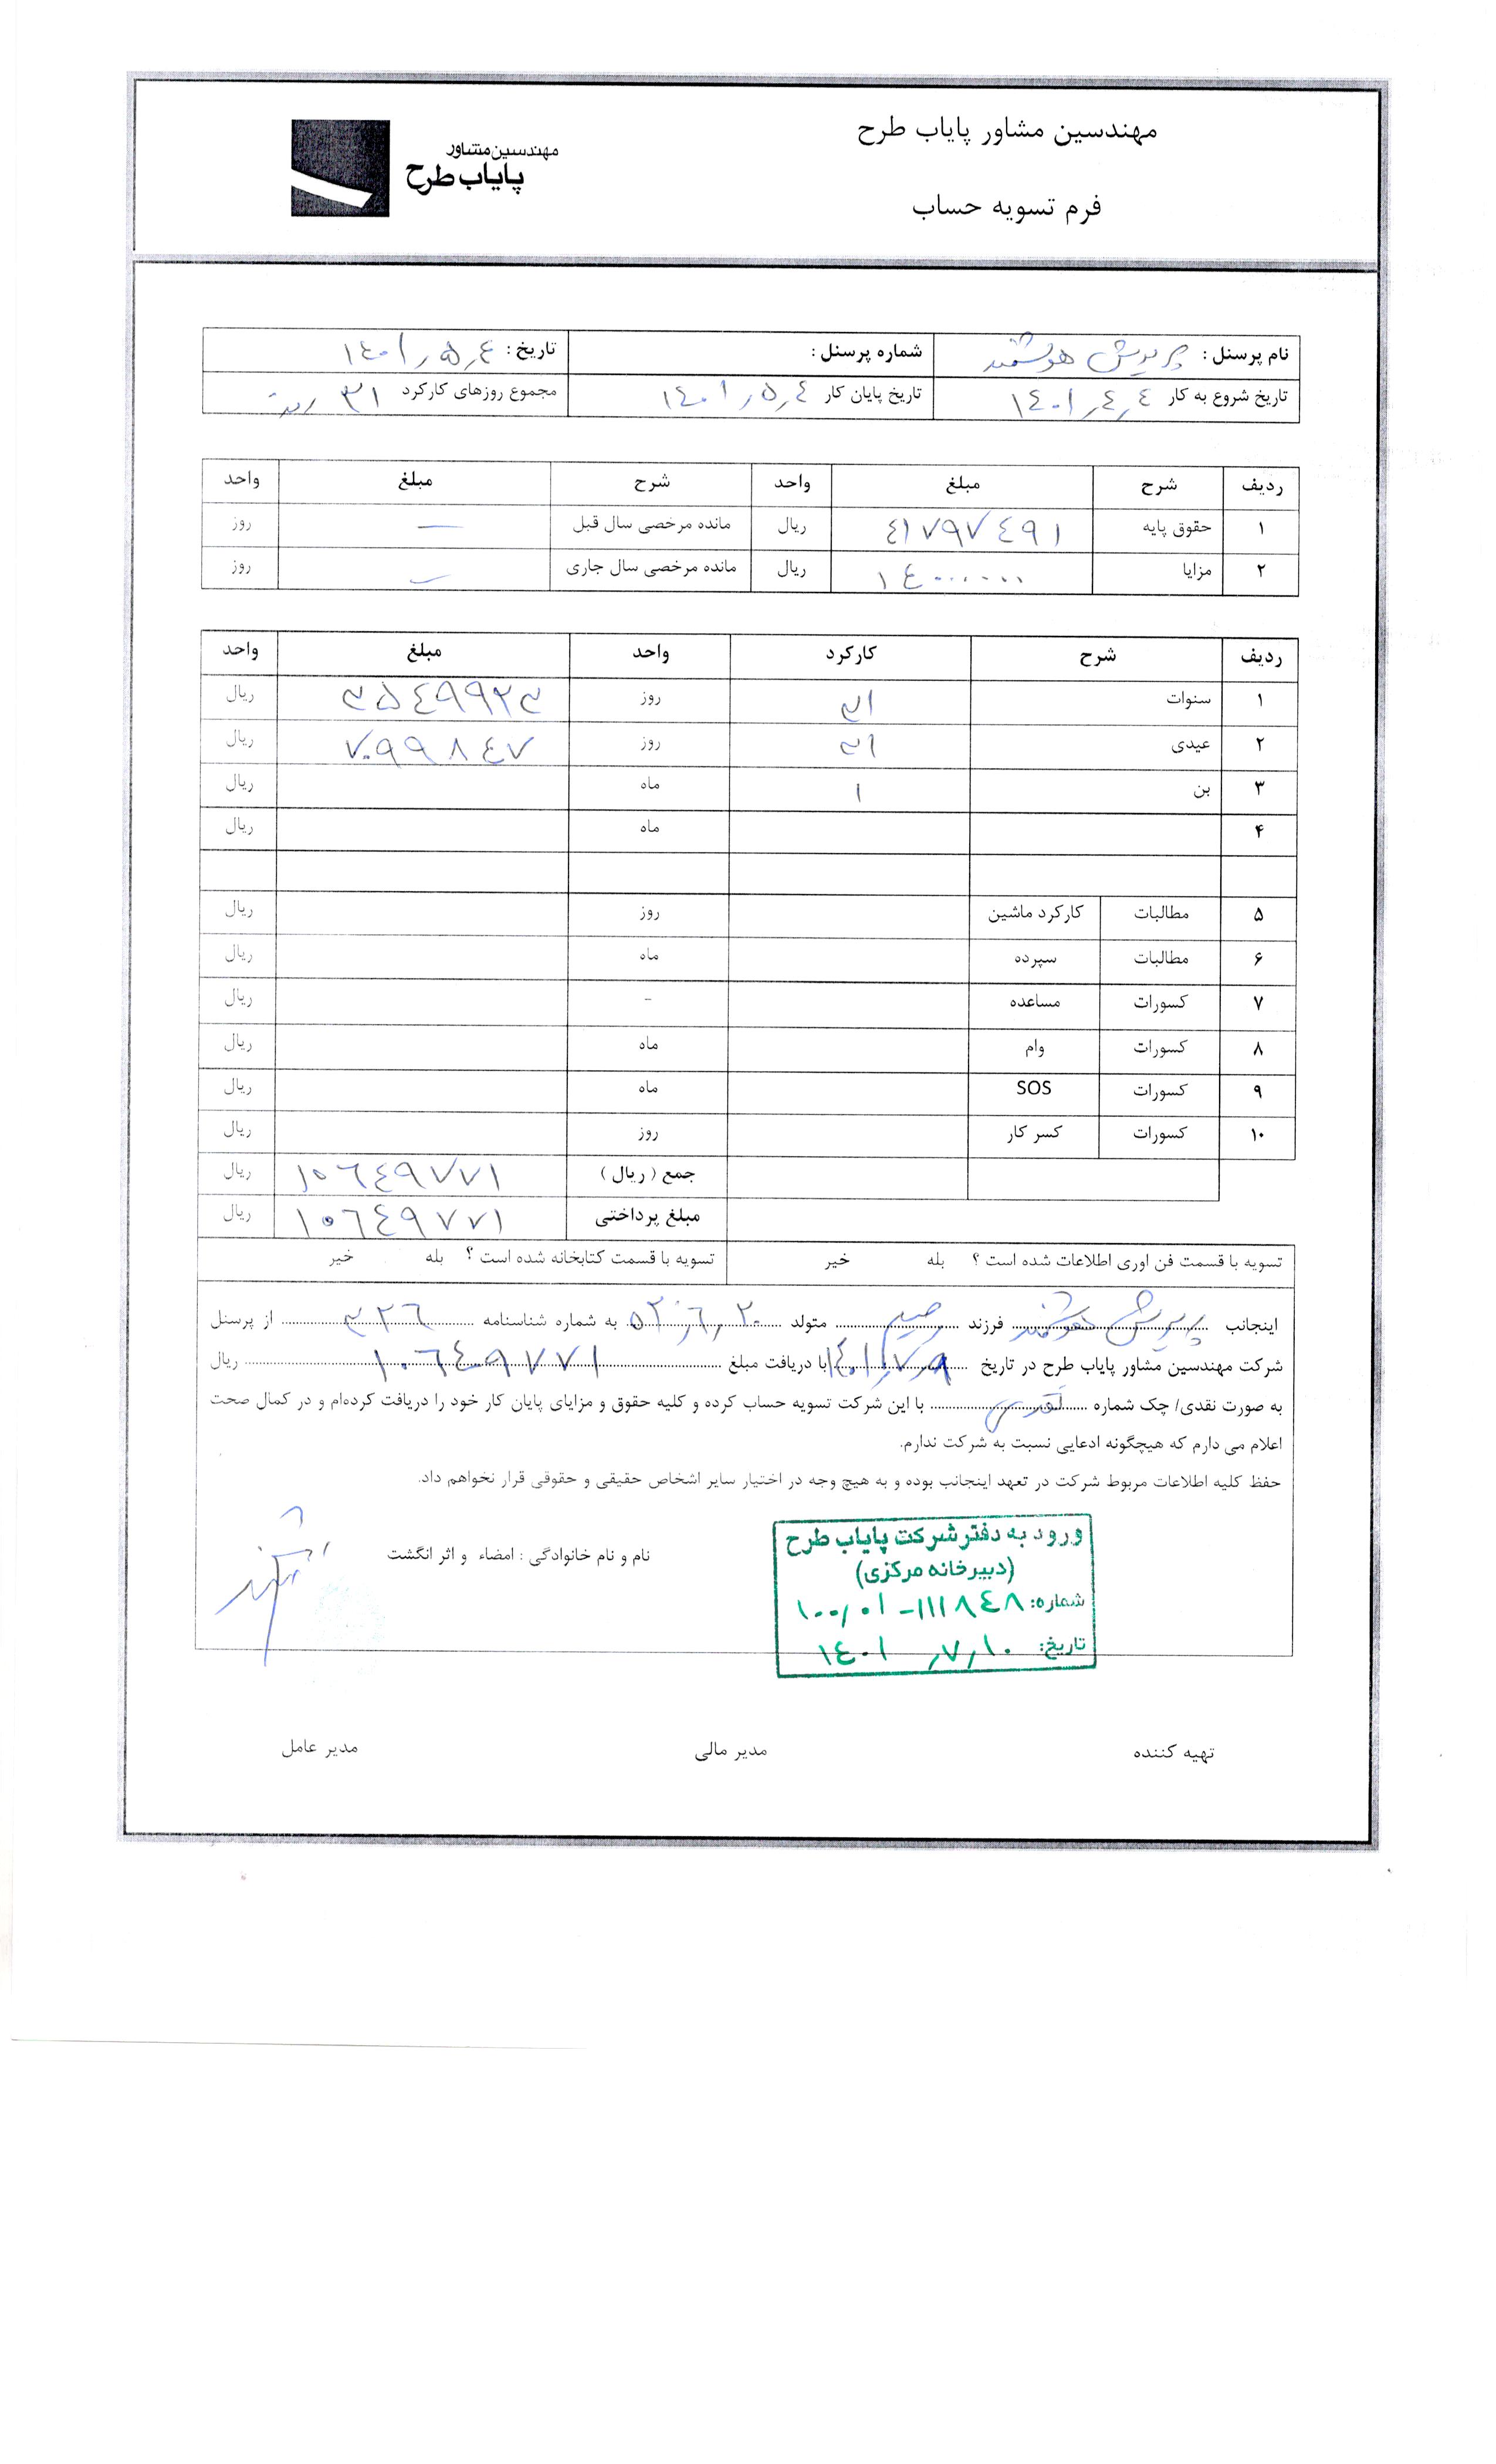 مهندسین مشاور پایاب طرح
مهندسین مشاور
پایاب طرح
فرم تسویه حساب
نام پرسنل : پریوش هوشمند شماره پرسنل : تاریخ : ١٤٠١٫٥٫٤
تاریخ شروع به کار ١٤٠١٫٤٫٤ تاریخ پایان کار ١٤٠١٫٥٫٤ مجموع روزهای کارکرد ٣١ روز
ردیف شرح مبلغ واحد شرح مبلغ واحد
۱ حقوق پایه ٤١٧٩٧٤٩١ ریال مانده مرخصی سال قبل — روز
۲ مزایا ١٤٠٠٠٠٠٠ ریال مانده مرخصی سال جاری — روز
ردیف شرح کارکرد واحد مبلغ واحد
۱ سنوات ٣١ روز ٣٥٤٩٩٢٣ ریال
۲ عیدی ٣١ روز ٧٠٩٩٨٤٧ ریال
۳ بن ١ ماه ریال
۴ ماه ریال
۵ مطالبات کارکرد ماشین روز ریال
۶ مطالبات سپرده ماه ریال
۷ کسورات مساعده - ریال
۸ کسورات وام ماه ریال
۹ کسورات SOS ماه ریال
۱۰ کسورات کسر کار روز ریال
جمع ( ریال ) ١٠٦٤٩٧٧١ ریال
مبلغ پرداختی ١٠٦٤٩٧٧١ ریال
تسویه با قسمت فن اوری اطلاعات شده است ؟ بله خیر تسویه با قسمت کتابخانه شده است ؟ بله خیر
اینجانب پریوش هوشمند فرزند متولد ٥٢٫٦٫٢٠ به شماره شناسنامه ٣٢٦ از پرسنل
شرکت مهندسین مشاور پایاب طرح در تاریخ ١٤٠١٫٧٫٩ با دریافت مبلغ ١٠٦٤٩٧٧١ ریال
به صورت نقدی/ چک شماره با این شرکت تسویه حساب کرده و کلیه حقوق و مزایای پایان کار خود را دریافت کرده‌ام و در کمال صحت
اعلام می دارم که هیچگونه ادعایی نسبت به شرکت ندارم.
حفظ کلیه اطلاعات مربوط شرکت در تعهد اینجانب بوده و به هیچ وجه در اختیار سایر اشخاص حقیقی و حقوقی قرار نخواهم داد.
نام و نام خانوادگی : امضاء و اثر انگشت
ورود به دفتر شرکت پایاب طرح
(دبیرخانه مرکزی)
شماره: ١٠٠٫٠١-١١١٨٤٨
تاریخ: ١٤٠١٫٧٫١٠
تهیه کننده مدیر مالی مدیر عامل